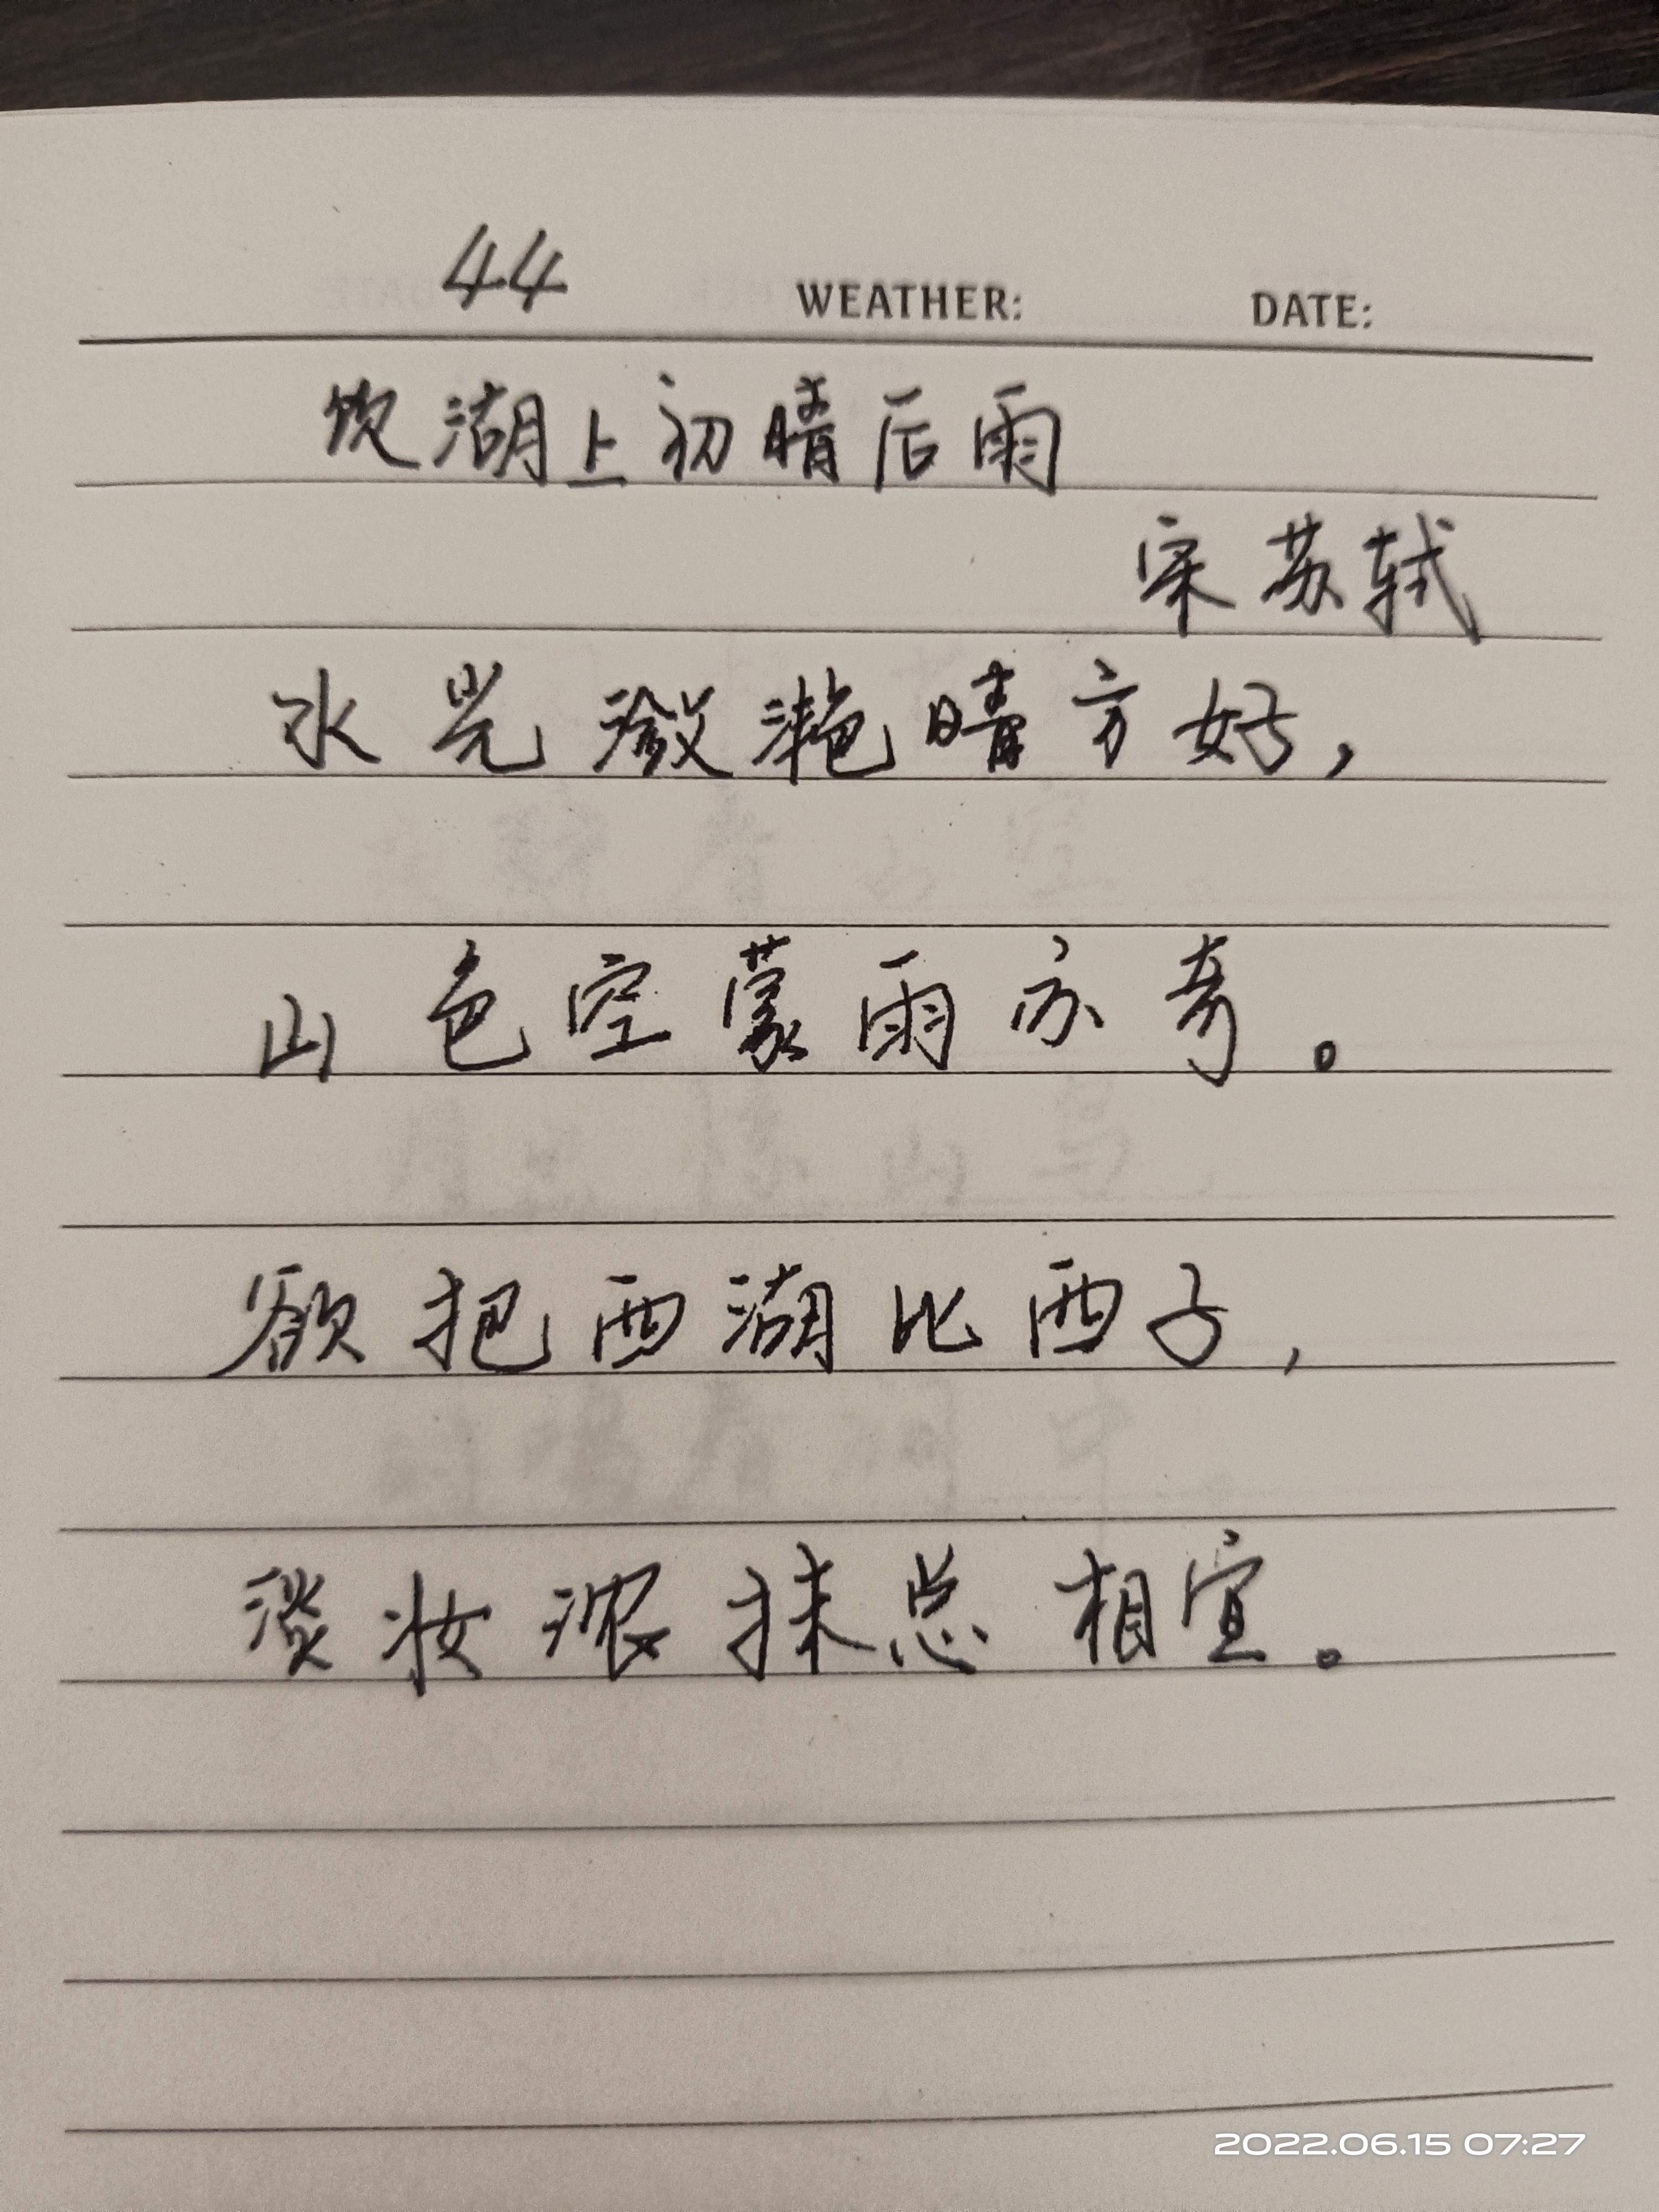 44 WEATHER: DATE:
饮湖上初晴后雨
宋 苏轼
水光潋滟晴方好，
山色空蒙雨亦奇。
欲把西湖比西子，
淡妆浓抹总相宜。
2022.06.15 07:27